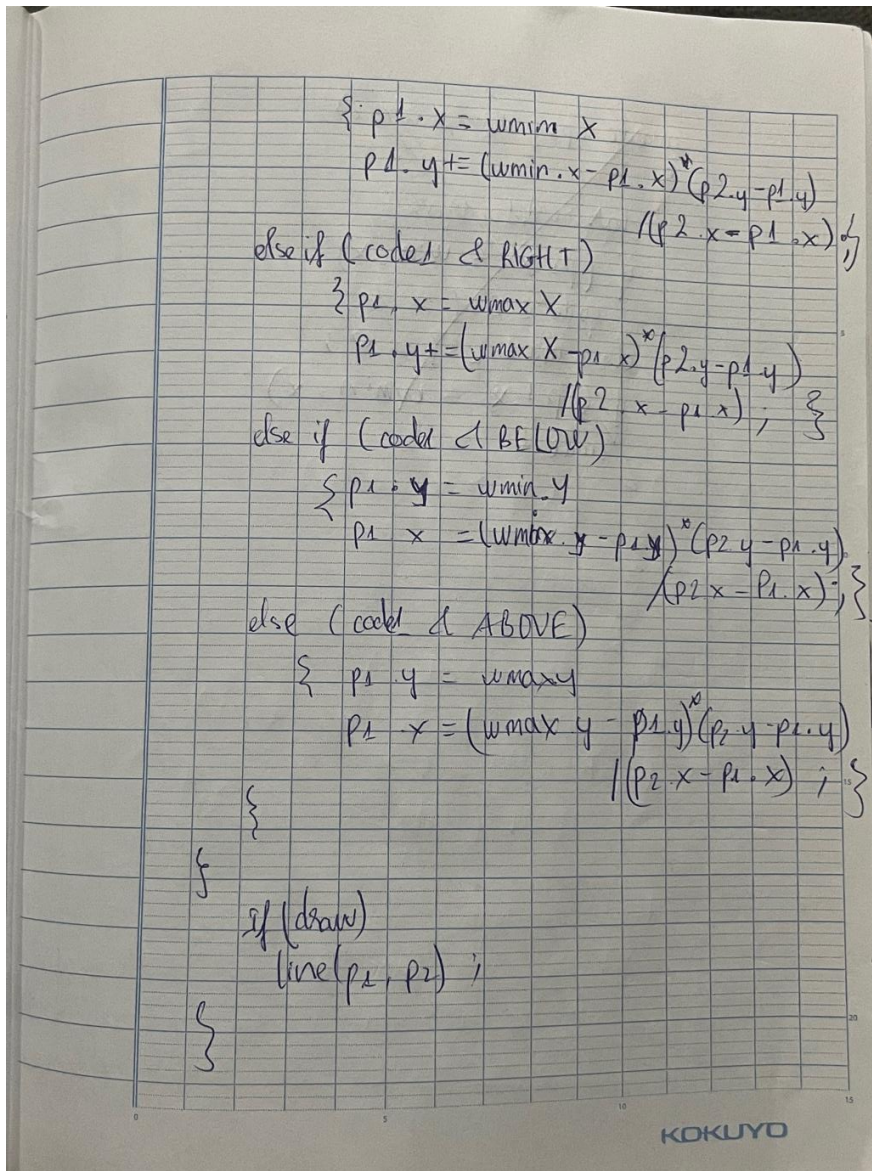 { p1.x = wmin X
p1.y += (wmin.x - p1.x)*(p2.y - p1.y)
/(p2.x - p1.x) ;}
else if ( code1 & RIGHT)
{ p1. x = wmax X
p1.y += (wmax X - p1 x)*(p2.y - p1.y)
/(p2 x - p1 x) ; }
else if ( code1 & BELOW)
{ p1.y = wmin.y
p1 x = ( . y - p1 y)*(p2 y - p1.y)
/(p2 x - P1.x) ; }
else ( code1 & ABOVE)
{ p1.y = wmaxy
p1 .x = (wmax y - p1.y)*(p2.y - p1.y)
/(p2.x - p1.x) ; }
}
}
if (draw)
line(p1, p2) ;
}
5
15
20
0 5 10 15
KOKUYO